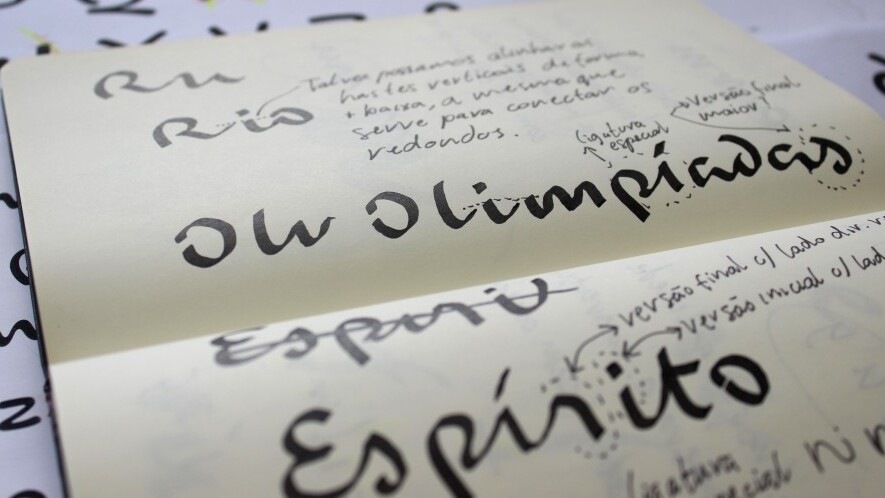 Ru
Rio
Talvez possamos alinhar as
hastes verticais de forma
+ baixa, a mesma que
serve para conectar os
redondos.
ligatura
especial
versão final
maior?
Olv Olimpíadas
Espírit
versão final c/ lado dir.
versão inicial c/ lad
Espírito
ligatura
especial